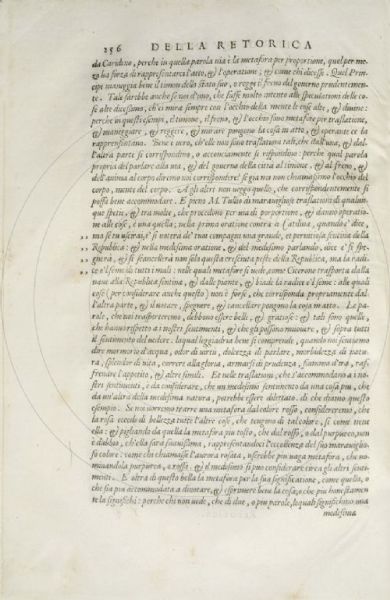 256 DELLA RETORICA
da Caridino, perche in quella parola uia è la metafora per proportione, qual per me-
zo ha forza di rappresentarci l'atto, & l'operatione; & come chi dicesse. Quel Prin-
cipe maneggia bene il timon dello stato suo, o regge il freno del governo prudentemen-
te. Tale sarebbe anche se noi d'uno, che fusse molto intento alle speculationi delle co-
se alte dicessimo, ch'ei mira sempre con l'occhio della mente le cose alte, & divine:
perche in questi esempi, il timone, il freno, & l'occhio sono metafore per traslatione,
& maneggiare, & reggere, & mirare pongono la cosa in atto, & operante ce la
rappresentano. Bene è vero, ch'elle non sono traslationi tali, che dall'una, & dal-
l'altra parte si corrispondino, o acconciamente si rispondino: perche qual parola
propria del parlare alla nave, & del governo della città al timone, & al freno, &
dell'anima al corpo diremo noi corrispondere? se gia noi non chiamassimo l'occhio del
corpo, mente del corpo. A gli altri non veggo quello, che corrispondentemente si
possa bene accommodare. E pieno M. Tullio di maravigliose traslationi di qualun-
que spetie, & tra molte, che procedino per via di portione, & danno operatio-
ne alle cose, è una quella, nella prima oratione contra à Catilina, quando e' dice,
ma se tu uscirai, e' si voterà de' tua compagni una grande, et perniciosa sentina della
Republica: & nella medesima oratione, & del medesimo parlando, dice e' si spe-
gnerà, & si scancellerà non solo questa cresciuta peste della Republica, ma la radi-
ce e'l seme di tutti i mali: nelle quali metafore si vede, come Cicerone trasporta dalla
nave alla Republica sentina, & dalle piante, & biade la radice e'l seme: alle quali
cose (per considerare anche questo) non è forse, che corrisponda propriamente dal-
l'altra parte, & il votare, spegnere, & cancellare pongono la cosa in atto. Le pa-
role, che noi trasporteremo, debbono essere belle, & gratiose: & tali sono quelle,
che hanno rispetto a i nostri sentimenti, & che gli possino muovere, & sopra tutti
il sentimento del vedere. la qual leggiadria bene si comprende, quando noi sentiamo
dire mormorio d'acqua, odor di virtù, dolcezza di parlare, morbidezza di natu-
ra, splendor di vita, correre alla gloria, armarsi di prudenza, fiamma d'ira, raf-
frenare l'appetito, & altre simili. Et nelle traslationi, che s'accommodano a i no-
stri sentimenti, è da considerare, che un medesimo sentimento da una cosa piu, che
da un'altra della medesima natura, potrebbe essere dilettato. di che diamo questo
esempio. Se noi vorremo trarre una metafora dal colore rosso, considereremo, che
la rosa eccede di bellezza tutte l'altre cose, che tengono di tal colore, si come non
ella: & pigliando da quella la metafora piu tosto, che dal rosso, o dal purpureo, non
è dubbio, ch'ella sarà suavissima, rappresentandoci l'eccellenza del suo maraviglio-
so colore: come chi chiamasse l'aurora rosata, userebbe piu vaga metafora, che no-
minandola purpurea, o rossa. & il medesimo si puo considerare circa gli altri senti-
menti. E oltra di questo bella la metafora per la sua significatione, come quella, o
che sia piu accommodata a dinotare, & esprimere bene la cosa, o che piu honestamen-
te la significhi: perche chi non vede, che di due, o piu parole, le quali significhino una
medesima